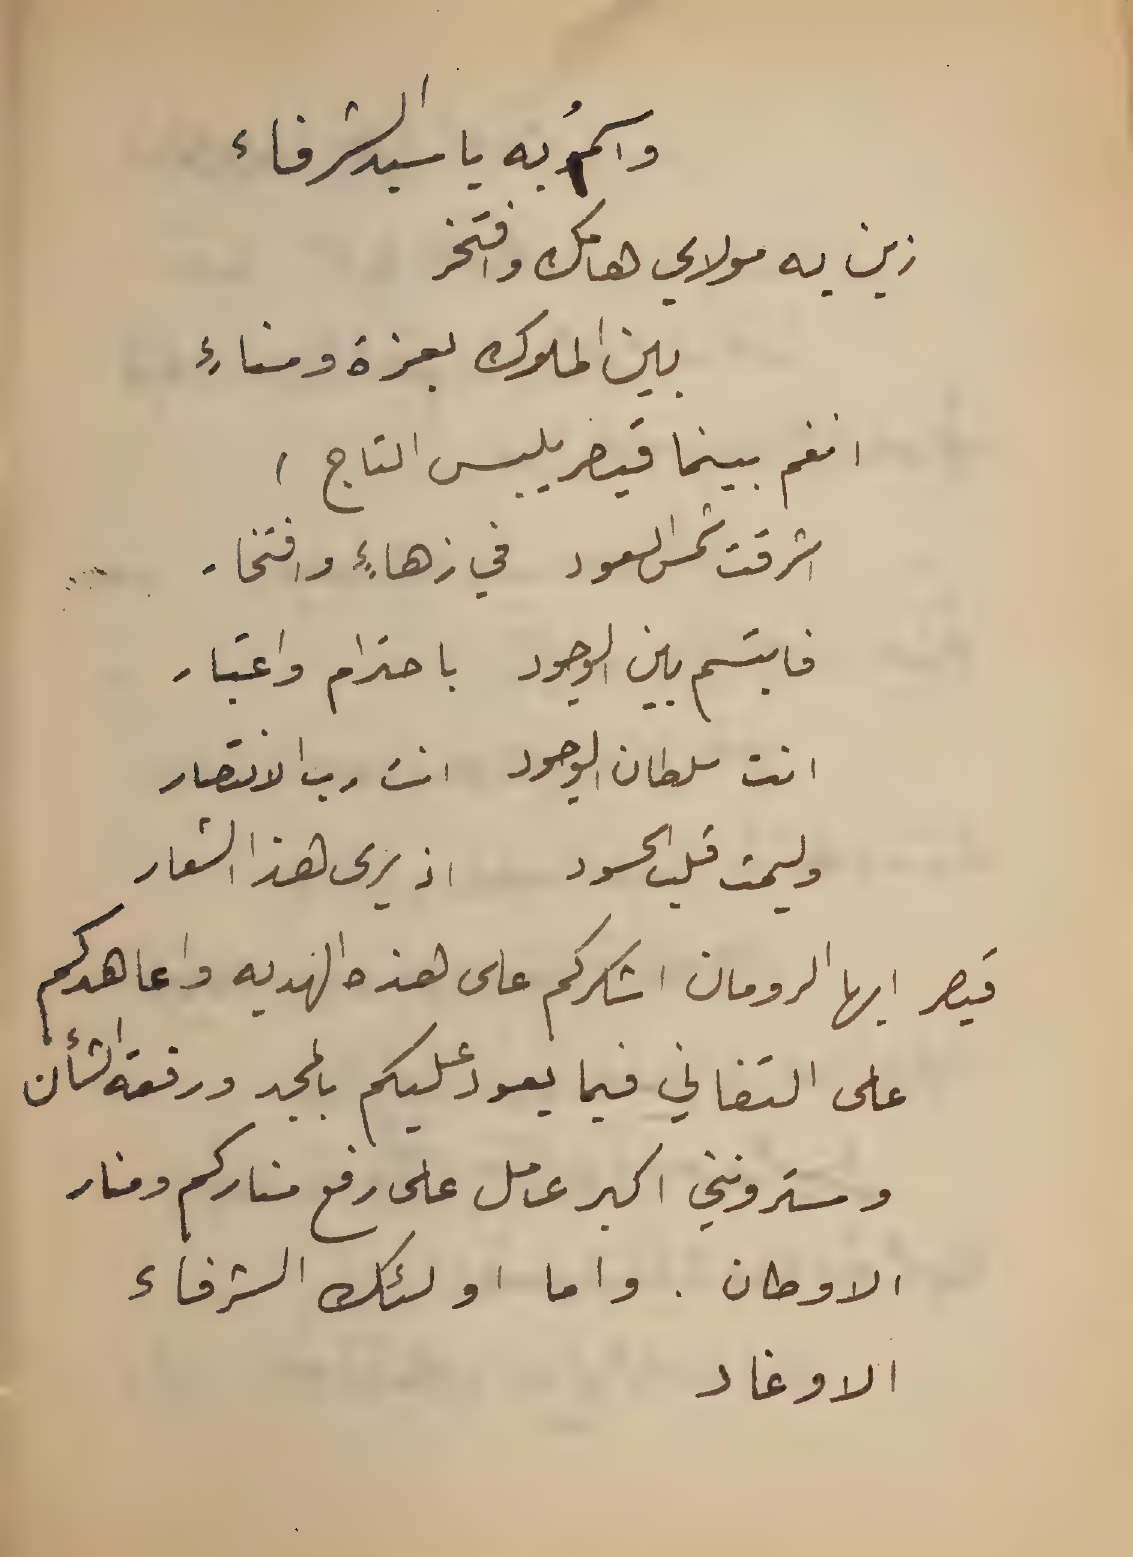 واسمُ به يا سيد الشرفاء
زين به مولاي هامك وافتخر
بين الملوك بعزة وسناءٍ
انغم بينما قيصر يلبس التاج )
اشرقت شمس السعود في زهاءٍ وافتخار
فابتسم بين الوجود باحترام واعتبار
انت سلطان الوجود انت رب الانتصار
وليمت قلب الحسود اذ يرى هذا الشعار
قيصر ايها الرومان اشكركم على هذه الهديه واعاهدكم
على التفاني فيما يعود عليكم بالمجد ورفعة الشأن
وسترونني اكبر عامل على رفع مناركم ومنار
الاوطان . واما اولئك الشرفاء
الاوغاد